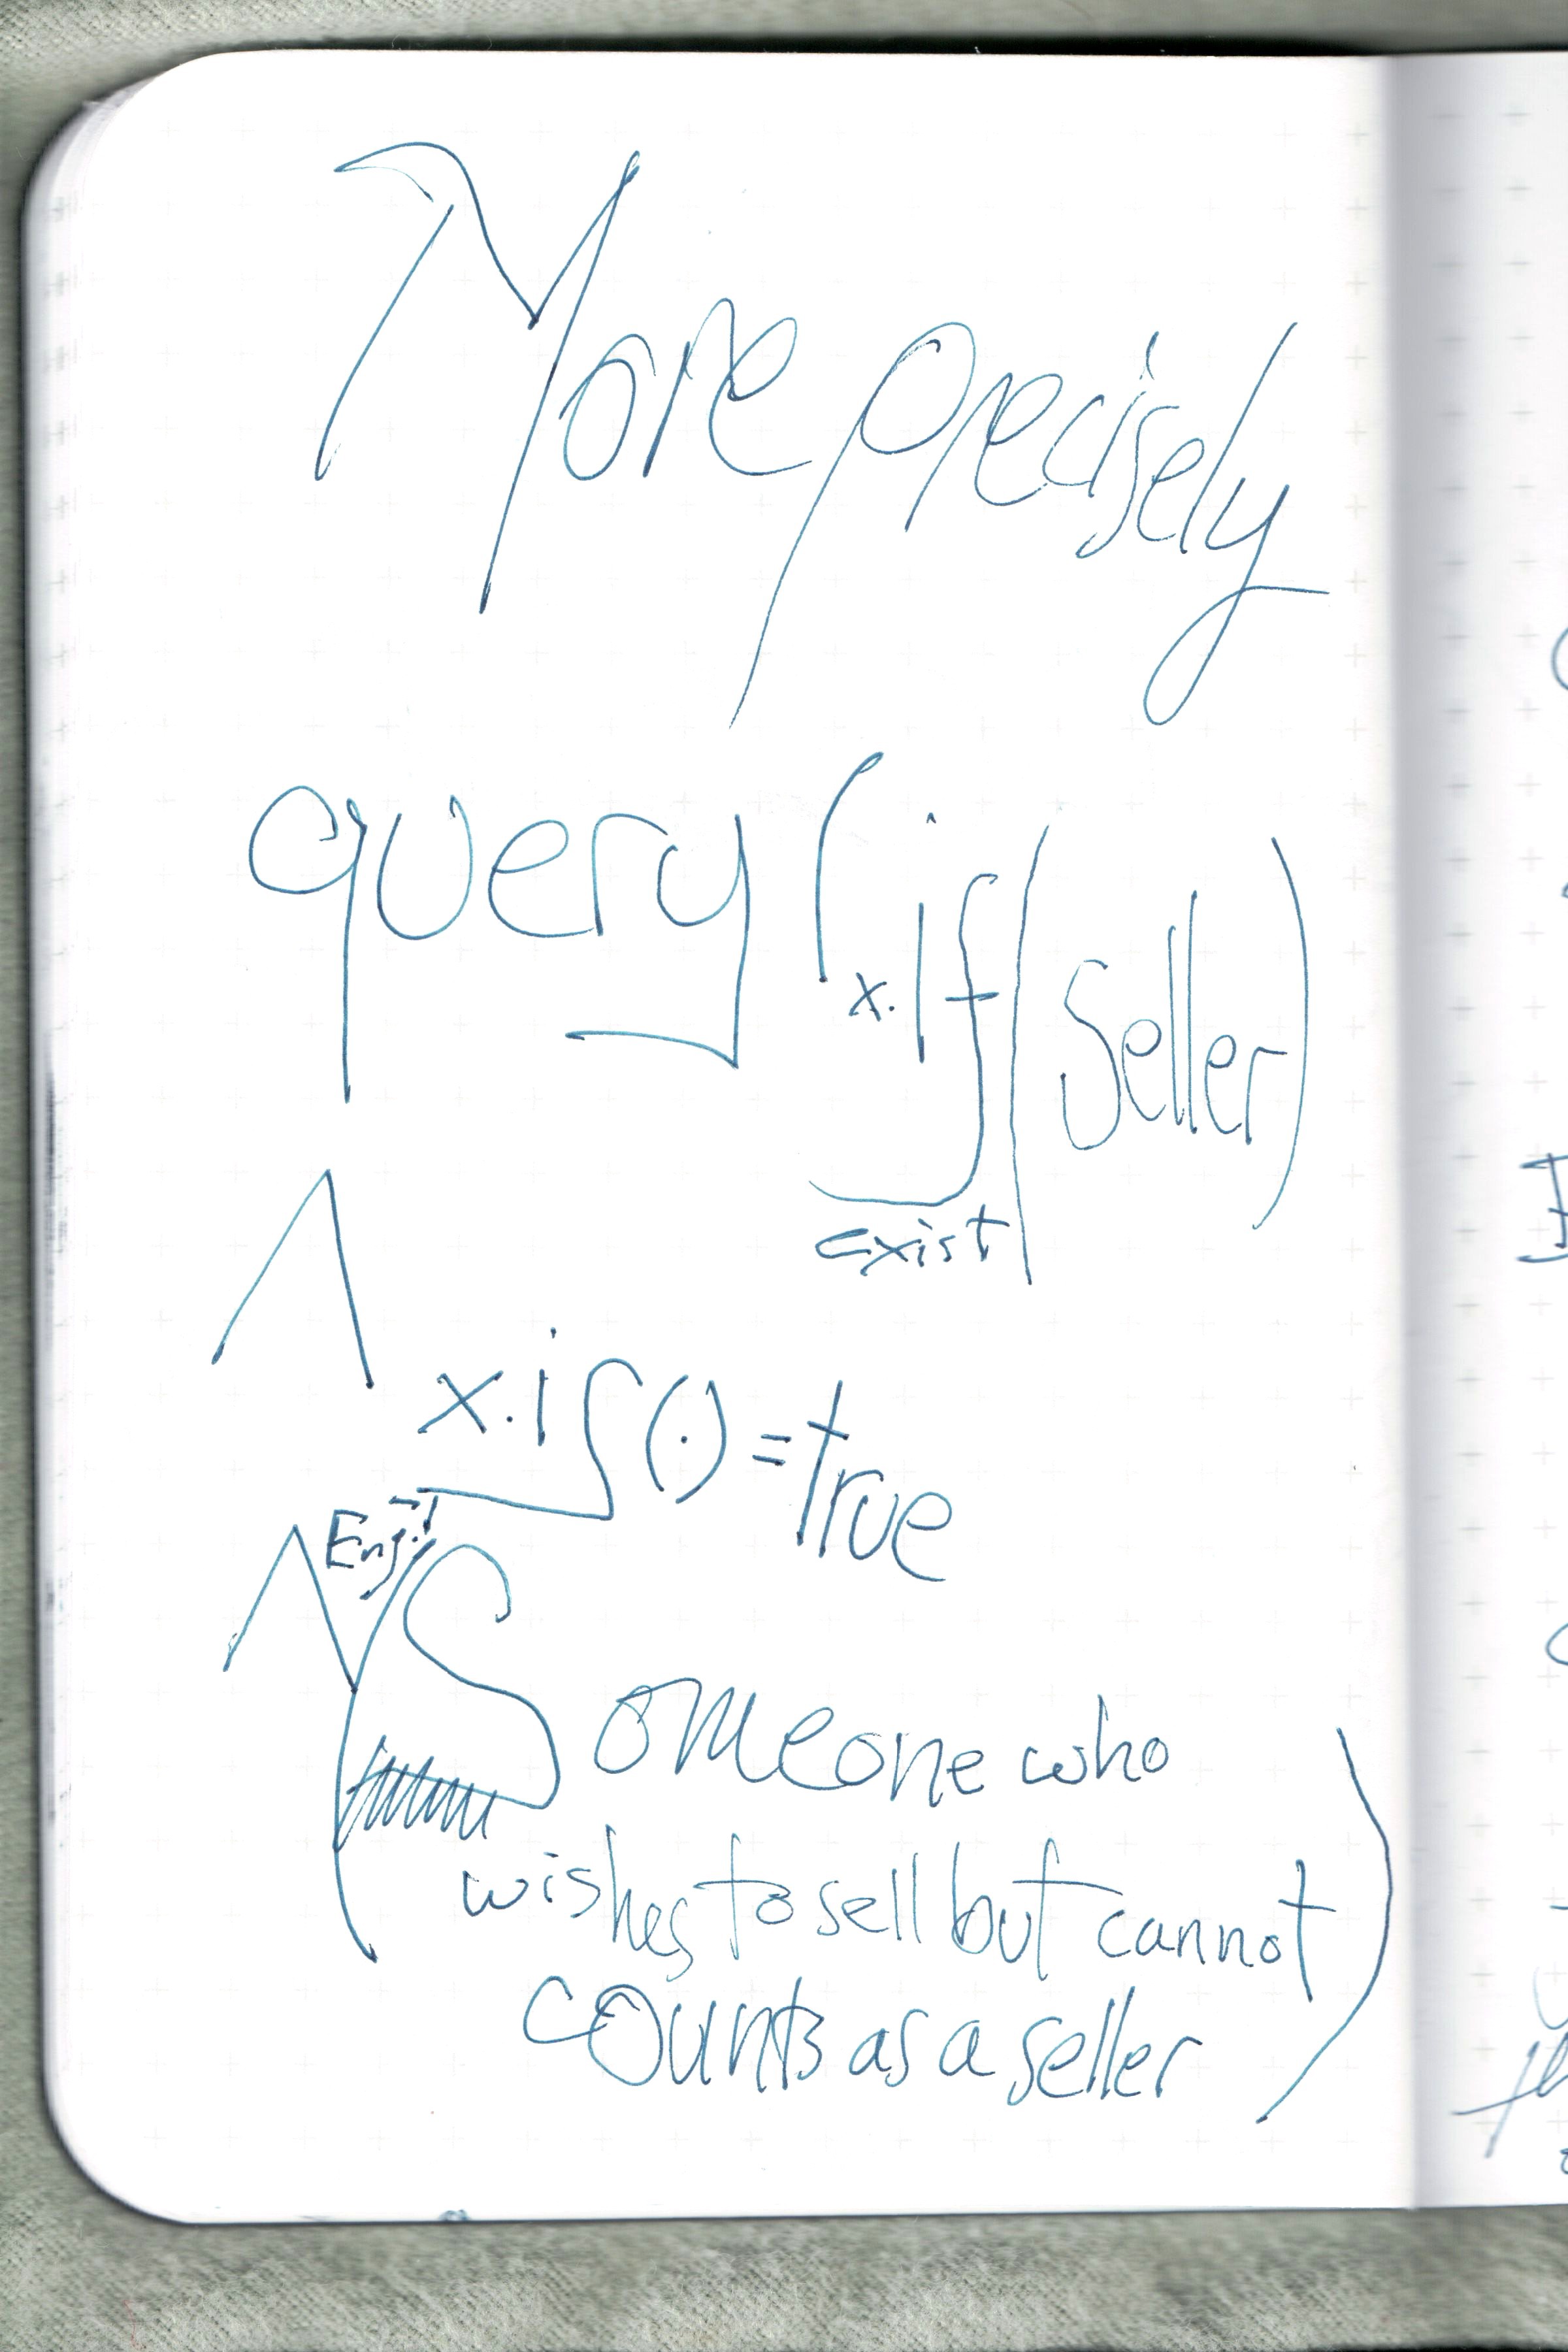 More precisely
query (x.if (Seller)
exist
∧
x.if(·) = true
∧ Eng.
(Someone who
wishes to sell but cannot
counts as a seller)